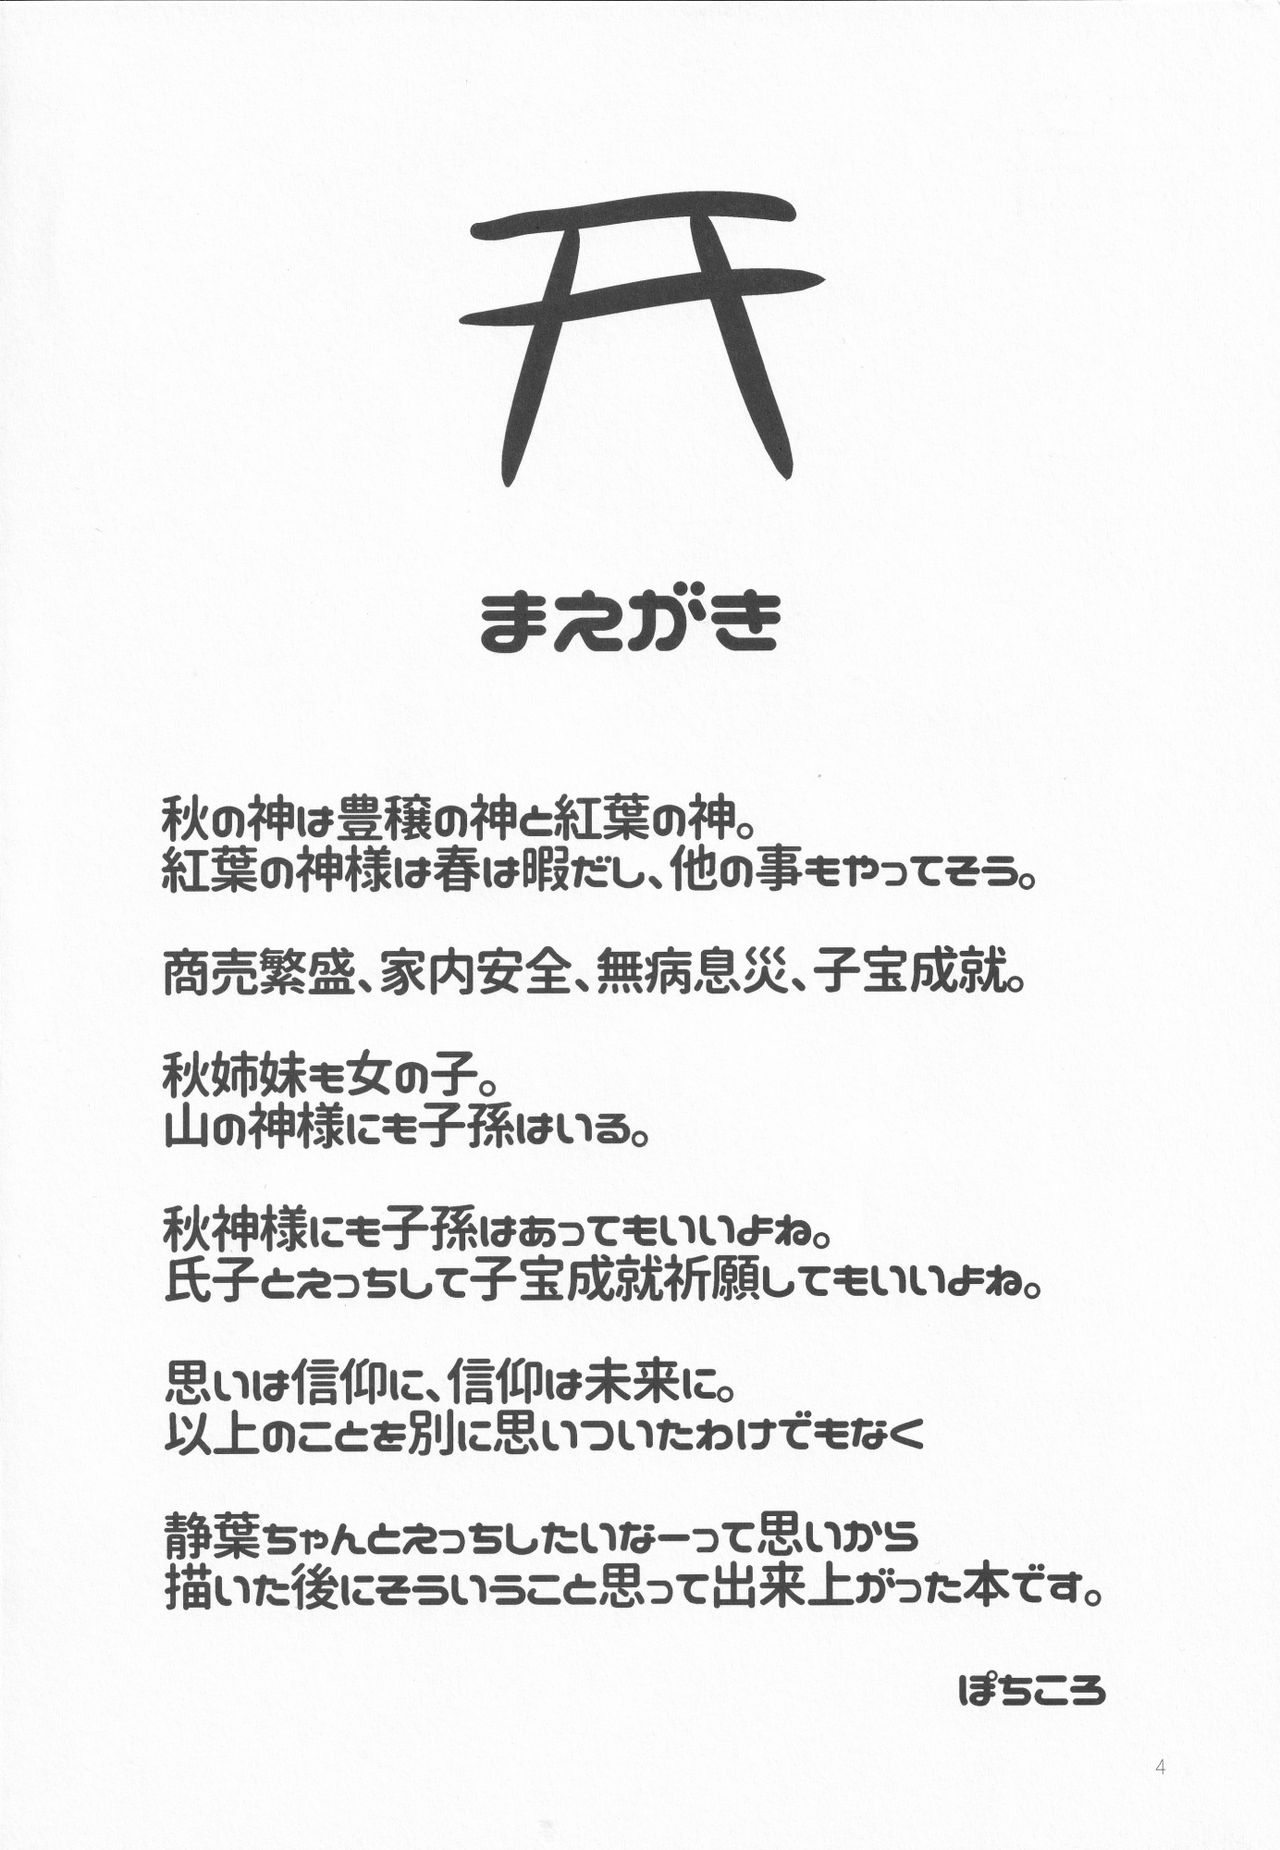 まえがき
秋の神は豊穣の神と紅葉の神。
紅葉の神様は春は暇だし、他の事もやってそう。
商売繁盛、家内安全、無病息災、子宝成就。
秋姉妹も女の子。
山の神様にも子孫はいる。
秋神様にも子孫はあってもいいよね。
氏子とえっちして子宝成就祈願してもいいよね。
思いは信仰に、信仰は未来に。
以上のことを別に思いついたわけでもなく
静葉ちゃんとえっちしたいなーって思いから
描いた後にそういうこと思って出来上がった本です。
ぽちころ
4